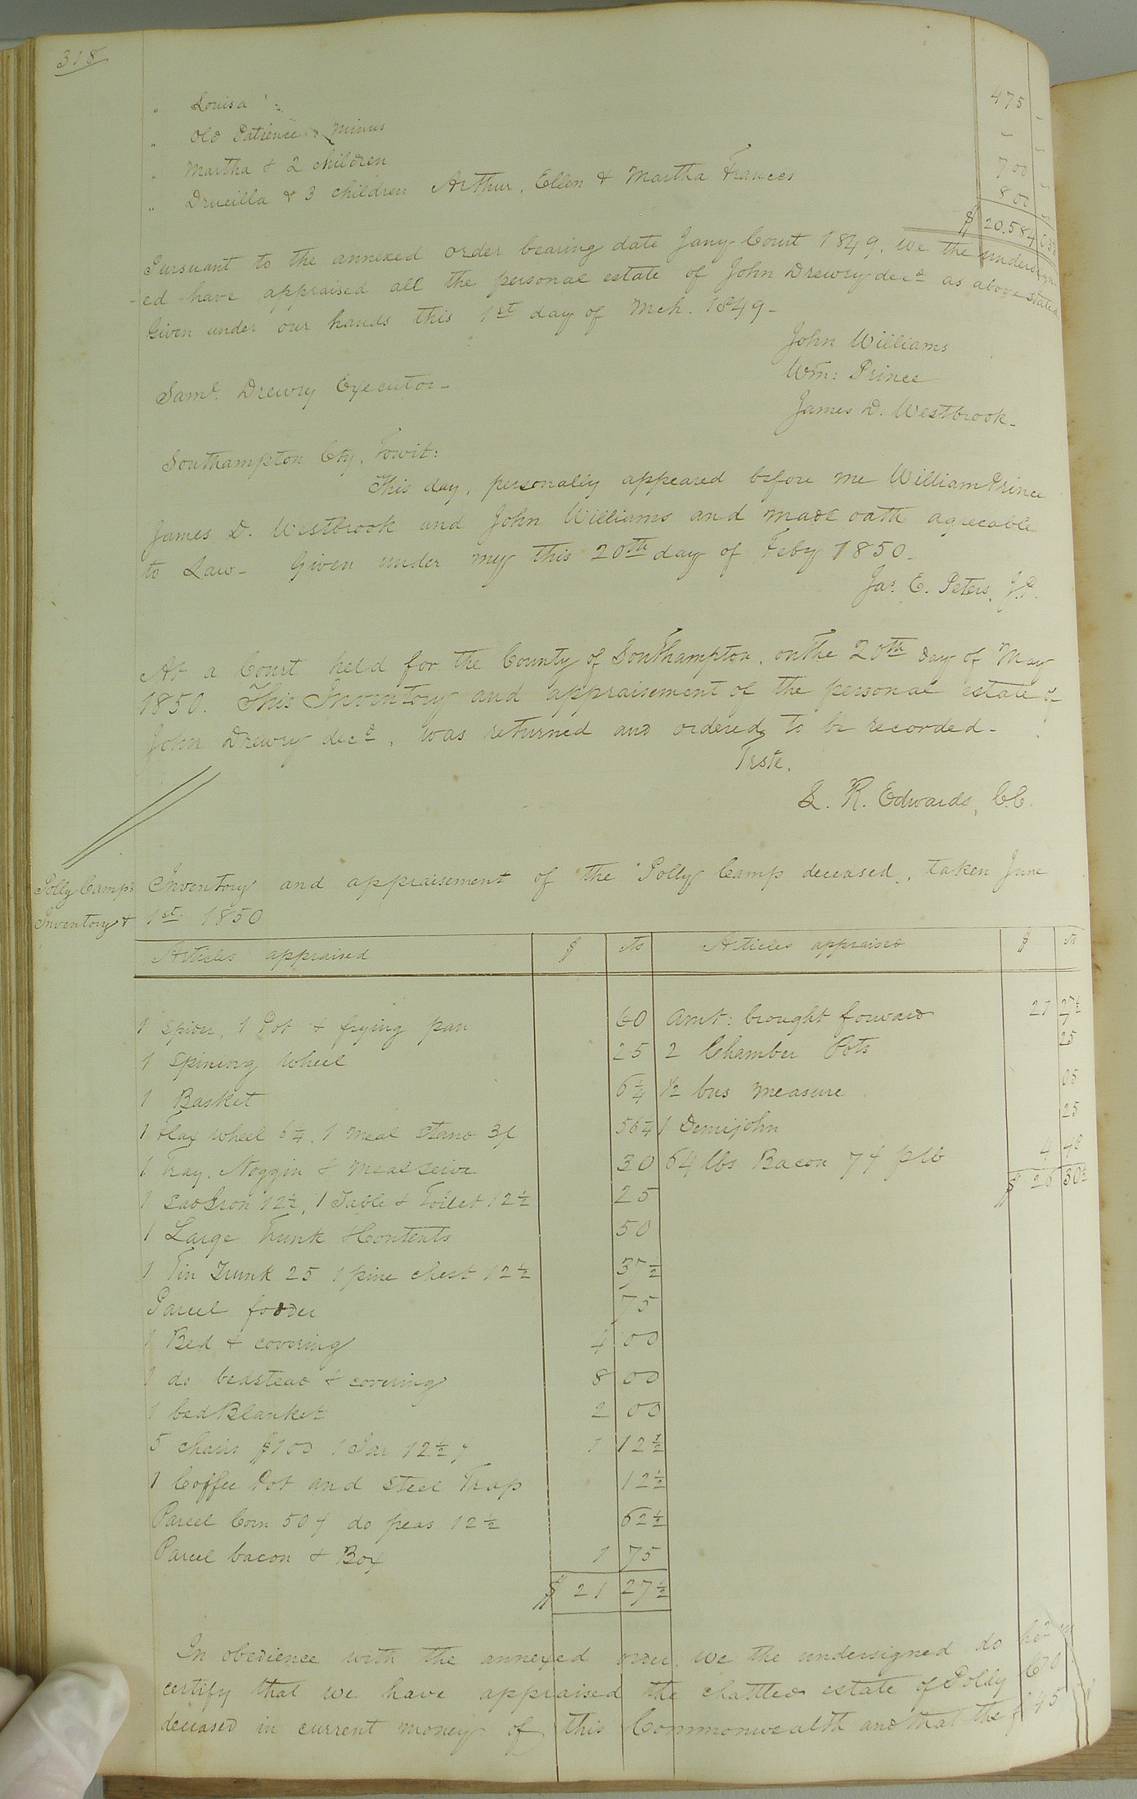 318
" Louisa " 475 -
" Old Patience Minus - -
" Martha & 2 children 700 -
" Drucilla & 3 children Arthur, Ellen & Martha Frances 800
$ 20.584
Pursuant to the annexed order bearing date Jany Court 1849. We the undersign
-ed have appraised all the personal estate of John Drewry decd as above stated
Given under our hands this 1st day of Mch. 1849-
John Williams
Wm: Prince
James D. Westbrook-
Saml. Drewry Executor-
Southampton Cty, Towit:
This day, personally appeared before me William Prince
James D. Westbrook and John Williams and made oath agreeable
to Law- Given under my this 20th day of Feby 1850-
Jas. E. Peters, J.P.
At a Court held for the County of Southampton, on the 20th day of May
1850. This Inventory and appraisement of the personal estate of
John Drewry decd, was returned and ordered to be recorded-
Teste,
L. R. Edwards, C.C.
Polly Camps Inventory and appraisement of the Polly Camp deceased, taken June
Inventory & 1st 1850
Articles appraised $ cts Articles appraised $ cts
1 Spider, 1 Pot & frying pan 60 Amt: brought forward 21 27½
1 Spining Wheel 25 2 Chamber Pots 25
1 Basket 6¼ ½ bus measure 05
1 Flax Wheel 6¼, 1 Meal Stand 56¼ 1 Demijohn 25
1 Tray, Noggin & Meal seive 30 64 lbs Bacon 7¢ p lb 4 48
1 Sad Iron 12½, 1 Table & Toilet 12½ 25 $ 26 30½
1 Large Trunk & Contents 50
1 Tin Trunk 25 1 pine chest 12½ 37½
Parcel fodder 75
1 Bed & covering 4 00
1 do bedstead & covering 8 00
1 bed Blanket 2 00
5 chairs $100 1 Jar 12½ 1 12½
1 Coffee Pot and Steel Trap 12½
Parcel Corn 50¢ do peas 12½ 62½
Parcel bacon & Box 1 75
$ 21 27½
In obedience with the annexed order, We the undersigned do
certify that we have appraised the chattles estate of Polly
deceased in current money of this Commonwealth and that the